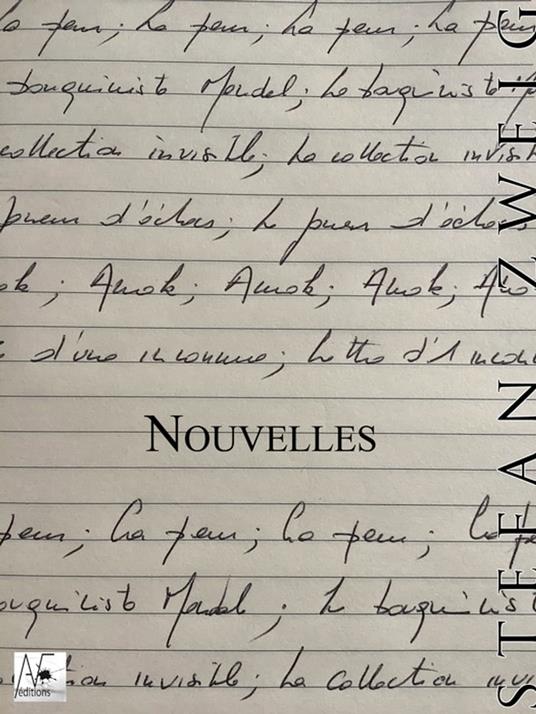 La peur ; La peur ; La peur ; La peur
bouquiniste Mendel ; Le bouquiniste
collection invisible ; La collection invisib
joueur d'échecs ; Le joueur d'échecs
ok ; Amok ; Amok ; Amok ; Amo
d'une inconnue ; Lettre d'1 incon
NOUVELLES
peur ; La peur ; La peur ; La pe
ouquiniste Mendel ; Le bouquinist
tion invisible ; La collection invi
STEFAN ZWEIG
AF
éditions